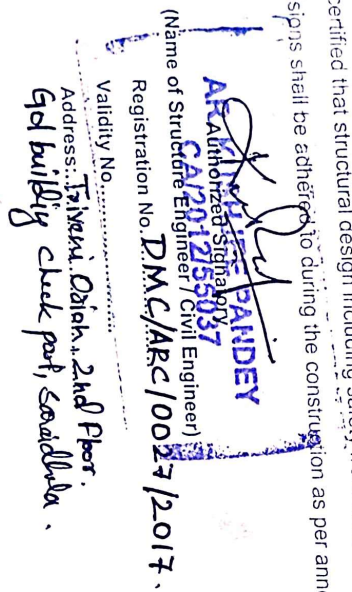 certified that structural design including
sions shall be adhered to during the construction as per anne
AR. PANDEY
Authorized Signatory
CA/2012/55037
(Name of Structure Engineer / Civil Engineer)
Registration No. DMC/ARC/0027/2017.
Validity No.
Address:. 2nd Floor.
check post,